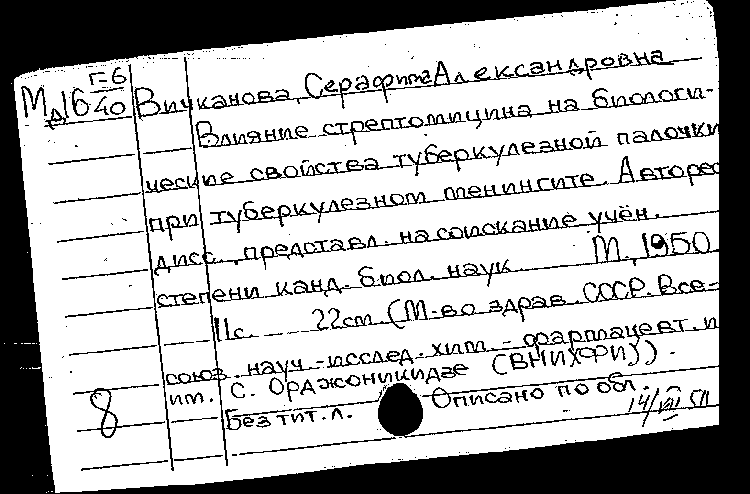 Г-6
Мд16 40 Вичканова, Серафима Александровна
Влияние стрептомицина на биологи-
ческие свойства туберкулезной палочки
при туберкулезном менингите. Авторе
дисс., представл. на соискание учён.
степени канд. биол. наук М, 1950
11с. 22см. (М-во здрав. СССР. Все-
союз. науч.-исслед. хим.-фармацевт. и
им. С. Орджоникидзе (ВНИХФИ)).
8 Без тит. л. Описано по обл.
14/VII 51